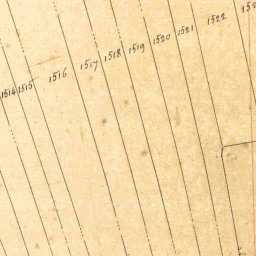 1514 1515 1516 1517 1518 1519 1520 1521 1522